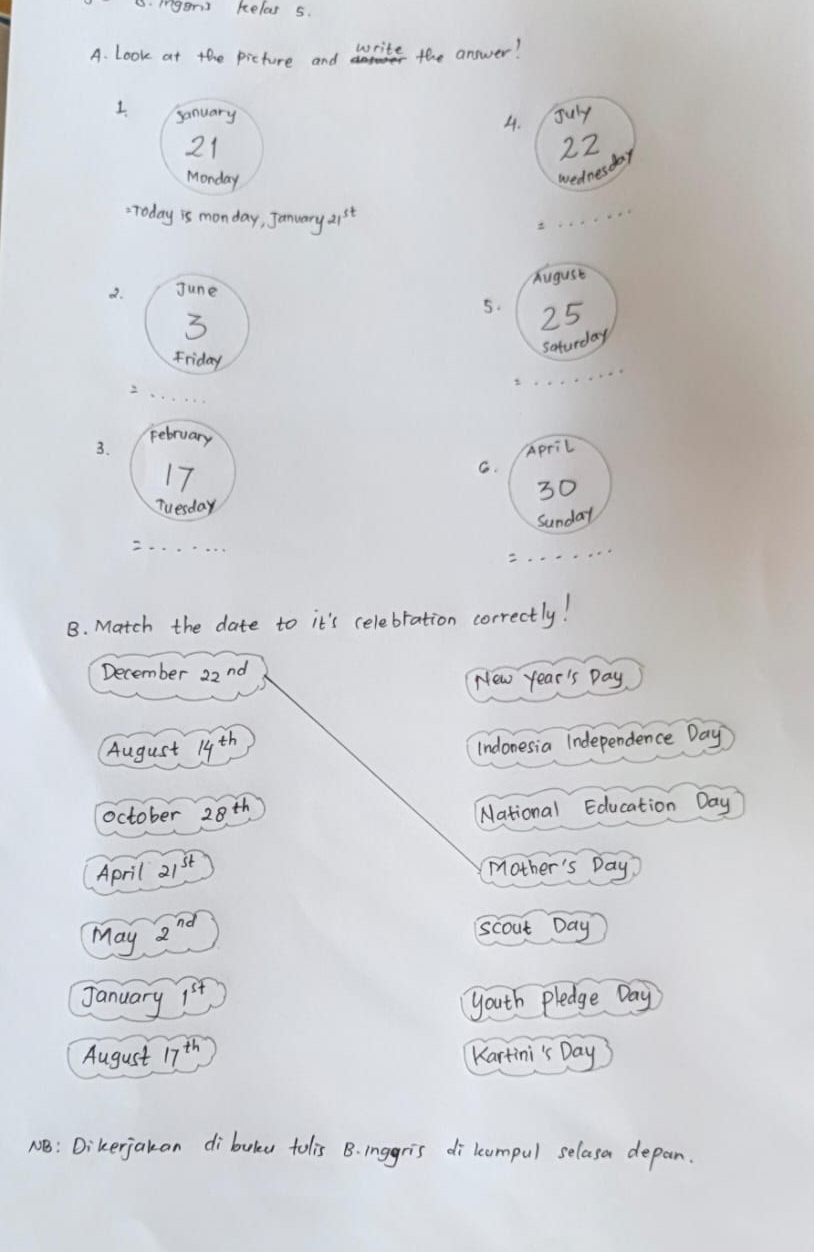 B. Inggris kelas 5.
A. Look at the picture and write the answer!
1. January
21
Monday
=Today is monday, January 21st
2. June
3
Friday
= ......
3. February
17
Tuesday
= .......
4. July
22
Wednesday
= .......
5. August
25
Saturday
= ........
6. April
30
Sunday
= ........
B. Match the date to it's celebration correctly!
December 22nd New Year's Day
August 14th Indonesia Independence Day
October 28th National Education Day
April 21st Mother's Day
May 2nd Scout Day
January 1st Youth pledge Day
August 17th Kartini's Day
NB: Dikerjakan di buku tulis B.Inggris di kumpul selasa depan.